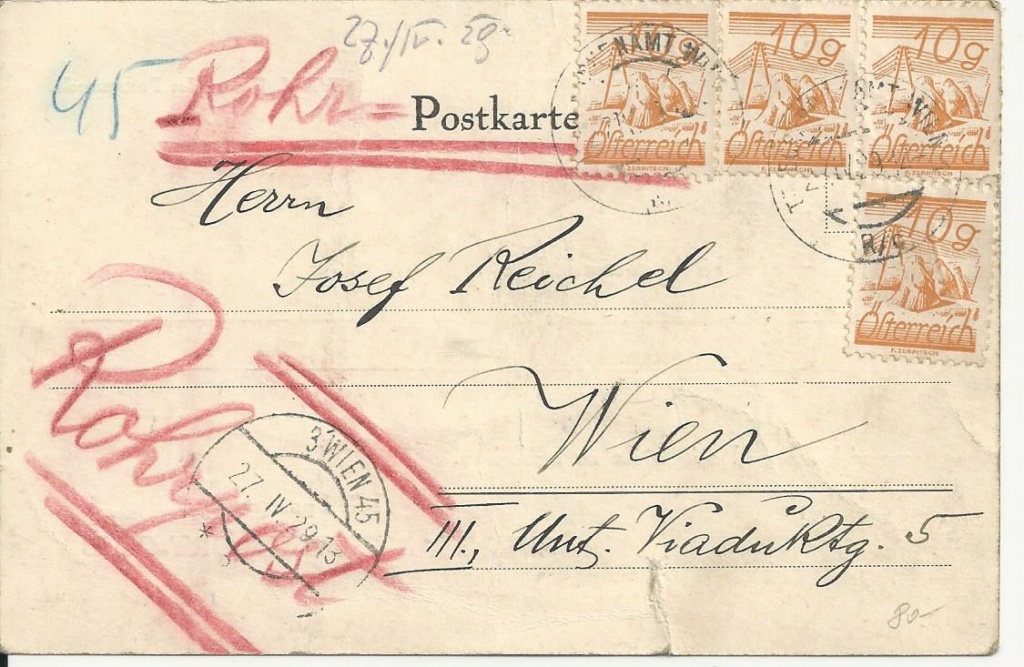 27./IV. 29.
45
Rohr=
Postkarte
10g
Österreich
F.ZERRITSCH
10g
Österreich
F.ZERRITSCH
10g
Österreich
F.ZERRITSCH
10g
Österreich
F.ZERRITSCH
WIEN
R/
Herrn
Josef Reichel
Rohrpost
3 WIEN 45
27. IV. 29 13
*
Wien
III., Unt. Viaduktg. 5
80-